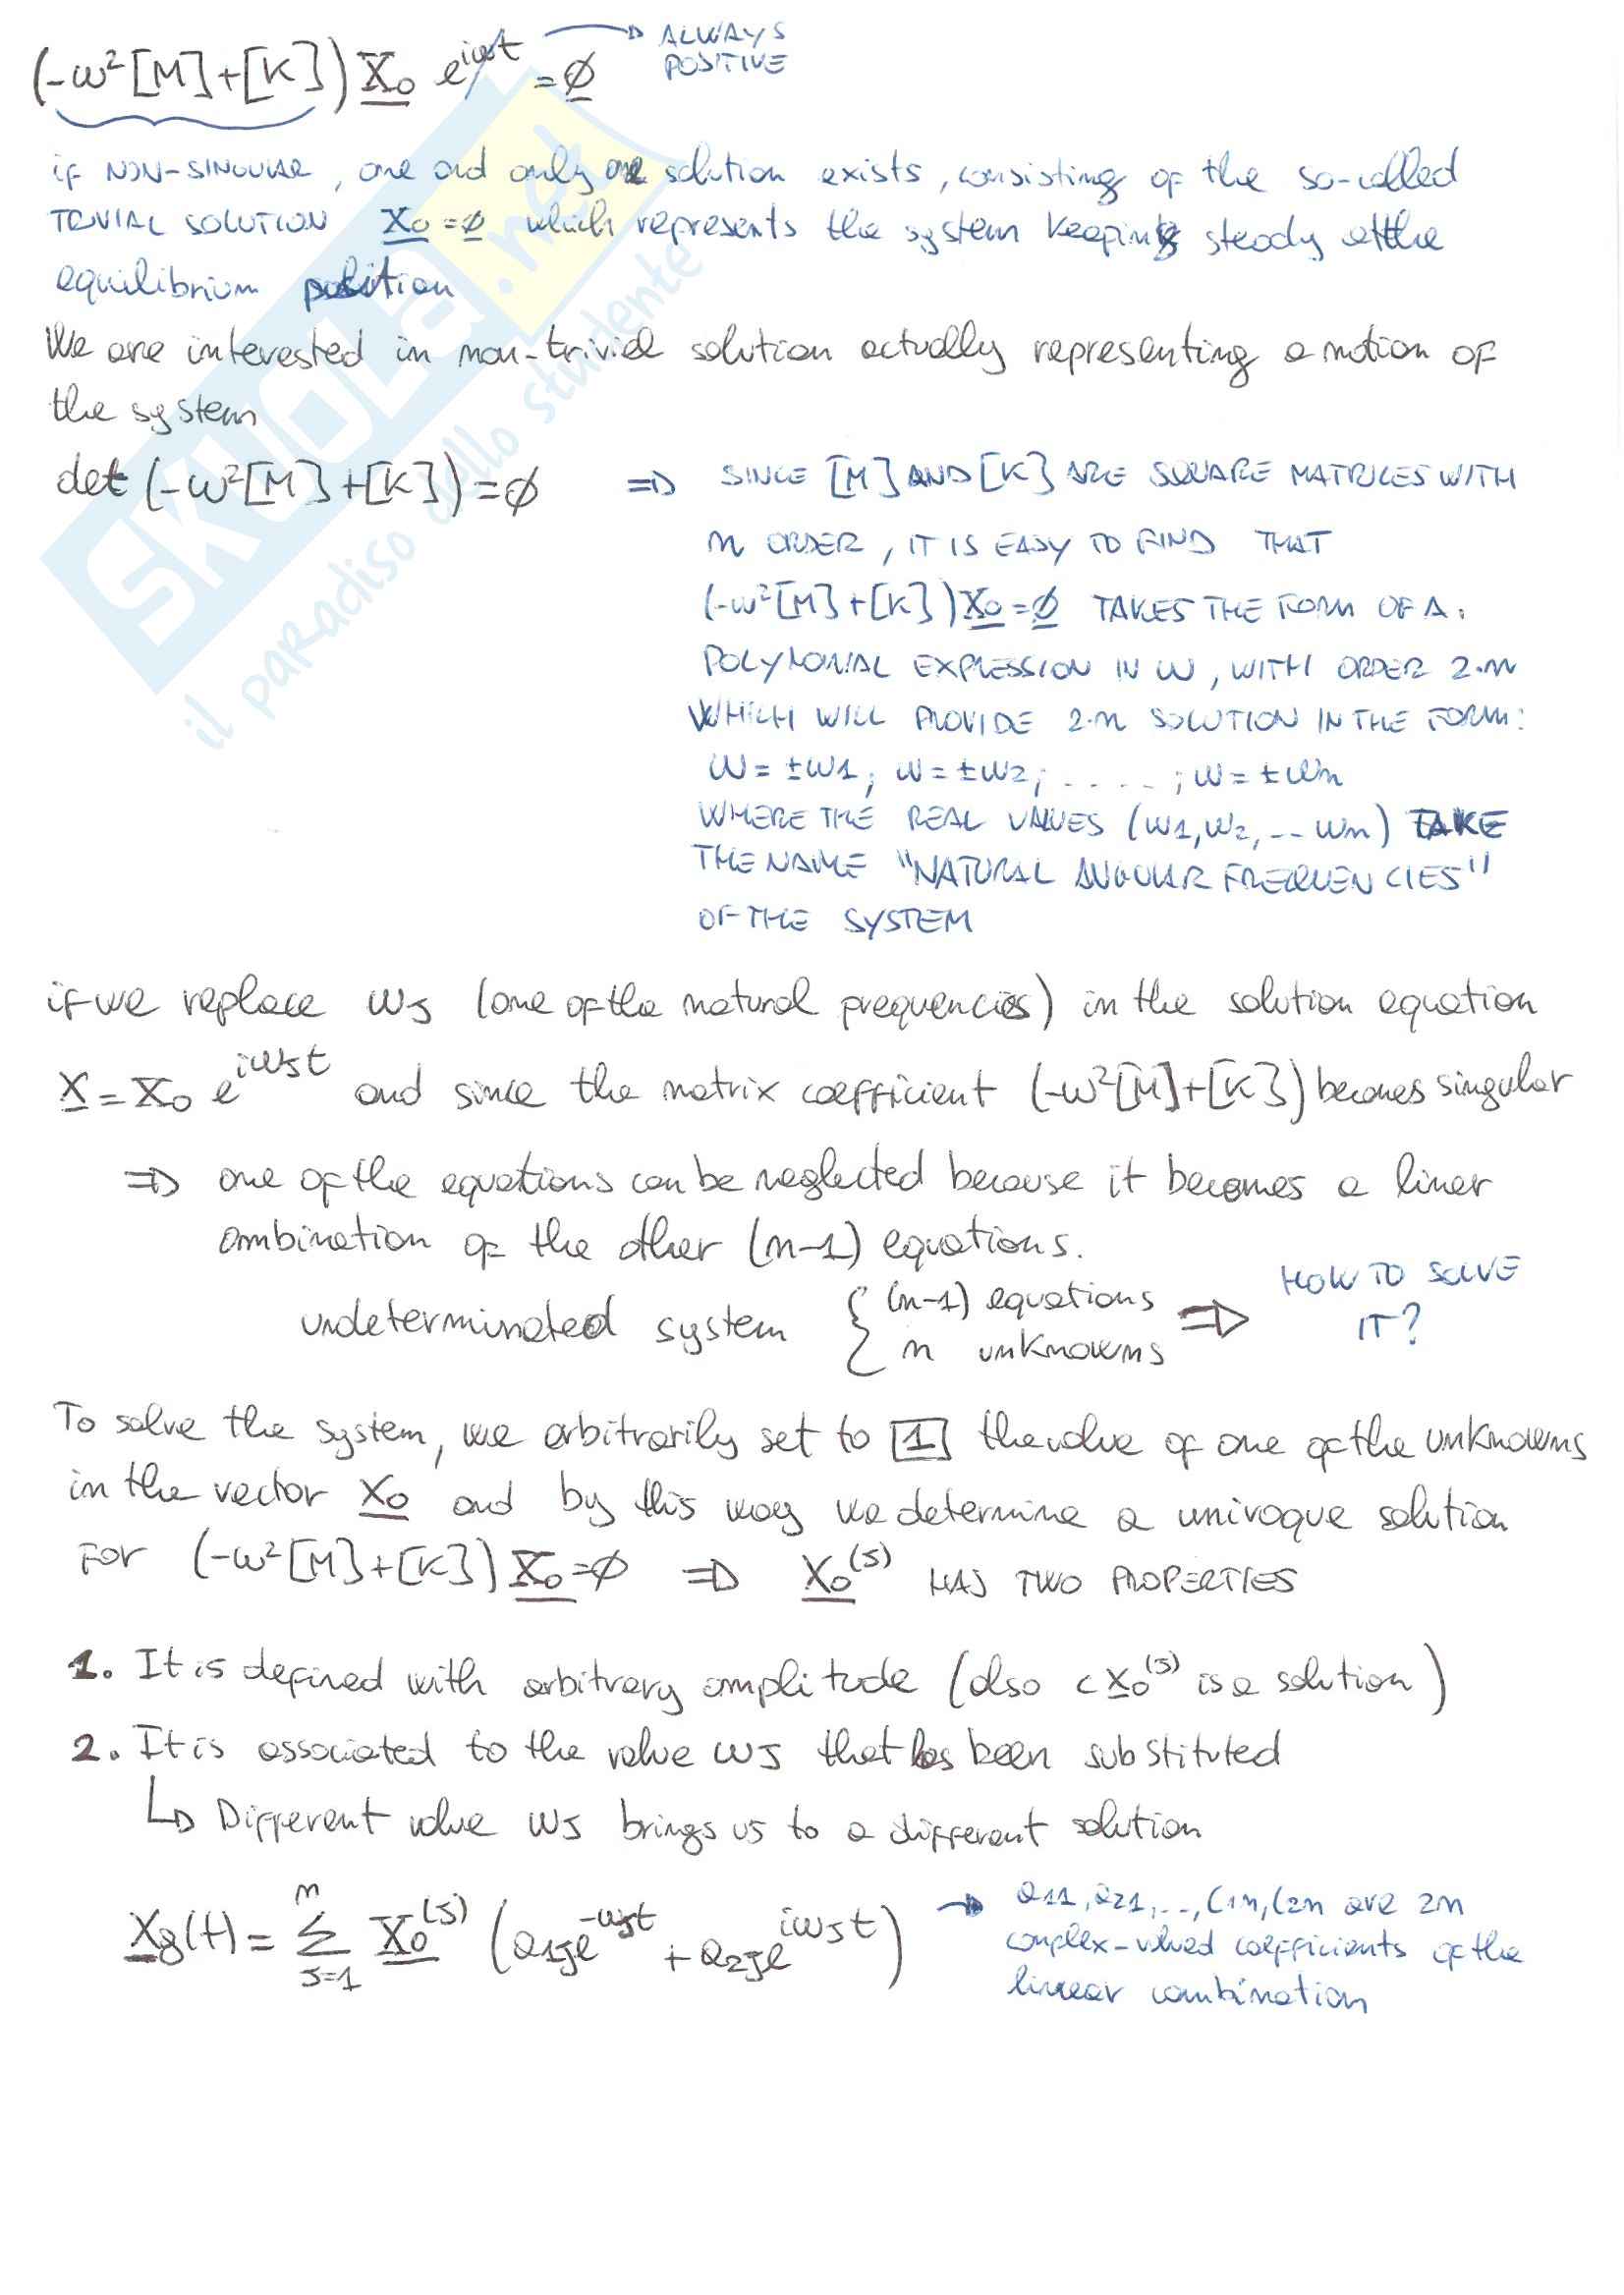 (-ω²[M]+[K]) X₀ e^{iωt} = ∅ → ALWAYS POSITIVE
if NON-SINGULAR, one and only one solution exists, consisting of the so-called
TRIVIAL SOLUTION X₀=∅ which represents the system keeping steady at the
equilibrium position
We are interested in non-trivial solution actually representing a motion of
the system
det (-ω²[M]+[K])=∅ ⇒ SINCE [M] AND [K] ARE SQUARE MATRICES WITH
n ORDER, IT IS EASY TO FIND THAT
(-ω²[M]+[K])X₀=∅ TAKES THE FORM OF A
POLYNOMIAL EXPRESSION IN ω, WITH ORDER 2·n
WHICH WILL PROVIDE 2·n SOLUTION IN THE FORM:
ω=±ω1; ω=±ω2; ....; ω=±ωn
WHERE THE REAL VALUES (ω1,ω2,--ωn) TAKE
THE NAME "NATURAL ANGULAR FREQUENCIES"
OF THE SYSTEM
if we replace ωJ (one of the natural frequencies) in the solution equation
X = X₀ e^{iωJt} and since the matrix coefficient (-ω²[M]+[K]) becomes singular
⇒ one of the equations can be neglected because it becomes a liner
combination of the other (n-1) equations.
undeterminated system { (n-1) equations ⇒ HOW TO SOLVE
n unknowns IT?
To solve the system, we arbitrarily set to [1] the value of one of the unknowns
in the vector X₀ and by this way we determine a univoque solution
FOR (-ω²[M]+[K])X₀=∅ ⇒ X₀^(J) HAS TWO PROPERTIES
1. It is defined with arbitrary amplitude (also c X₀^(J) is a solution)
2. It is associated to the value ωJ that has been substituted
↳ Different value ωJ brings us to a different solution
Xg(t) = Σ_{J=1}^{n} X₀^(J) (a1J e^{-ωJt} + a2J e^{iωJt}) → a11, a21, .., C1n, C2n are 2n
complex-valued coefficients of the
linear combination
SKUOLA.net
il paradiso dello studente